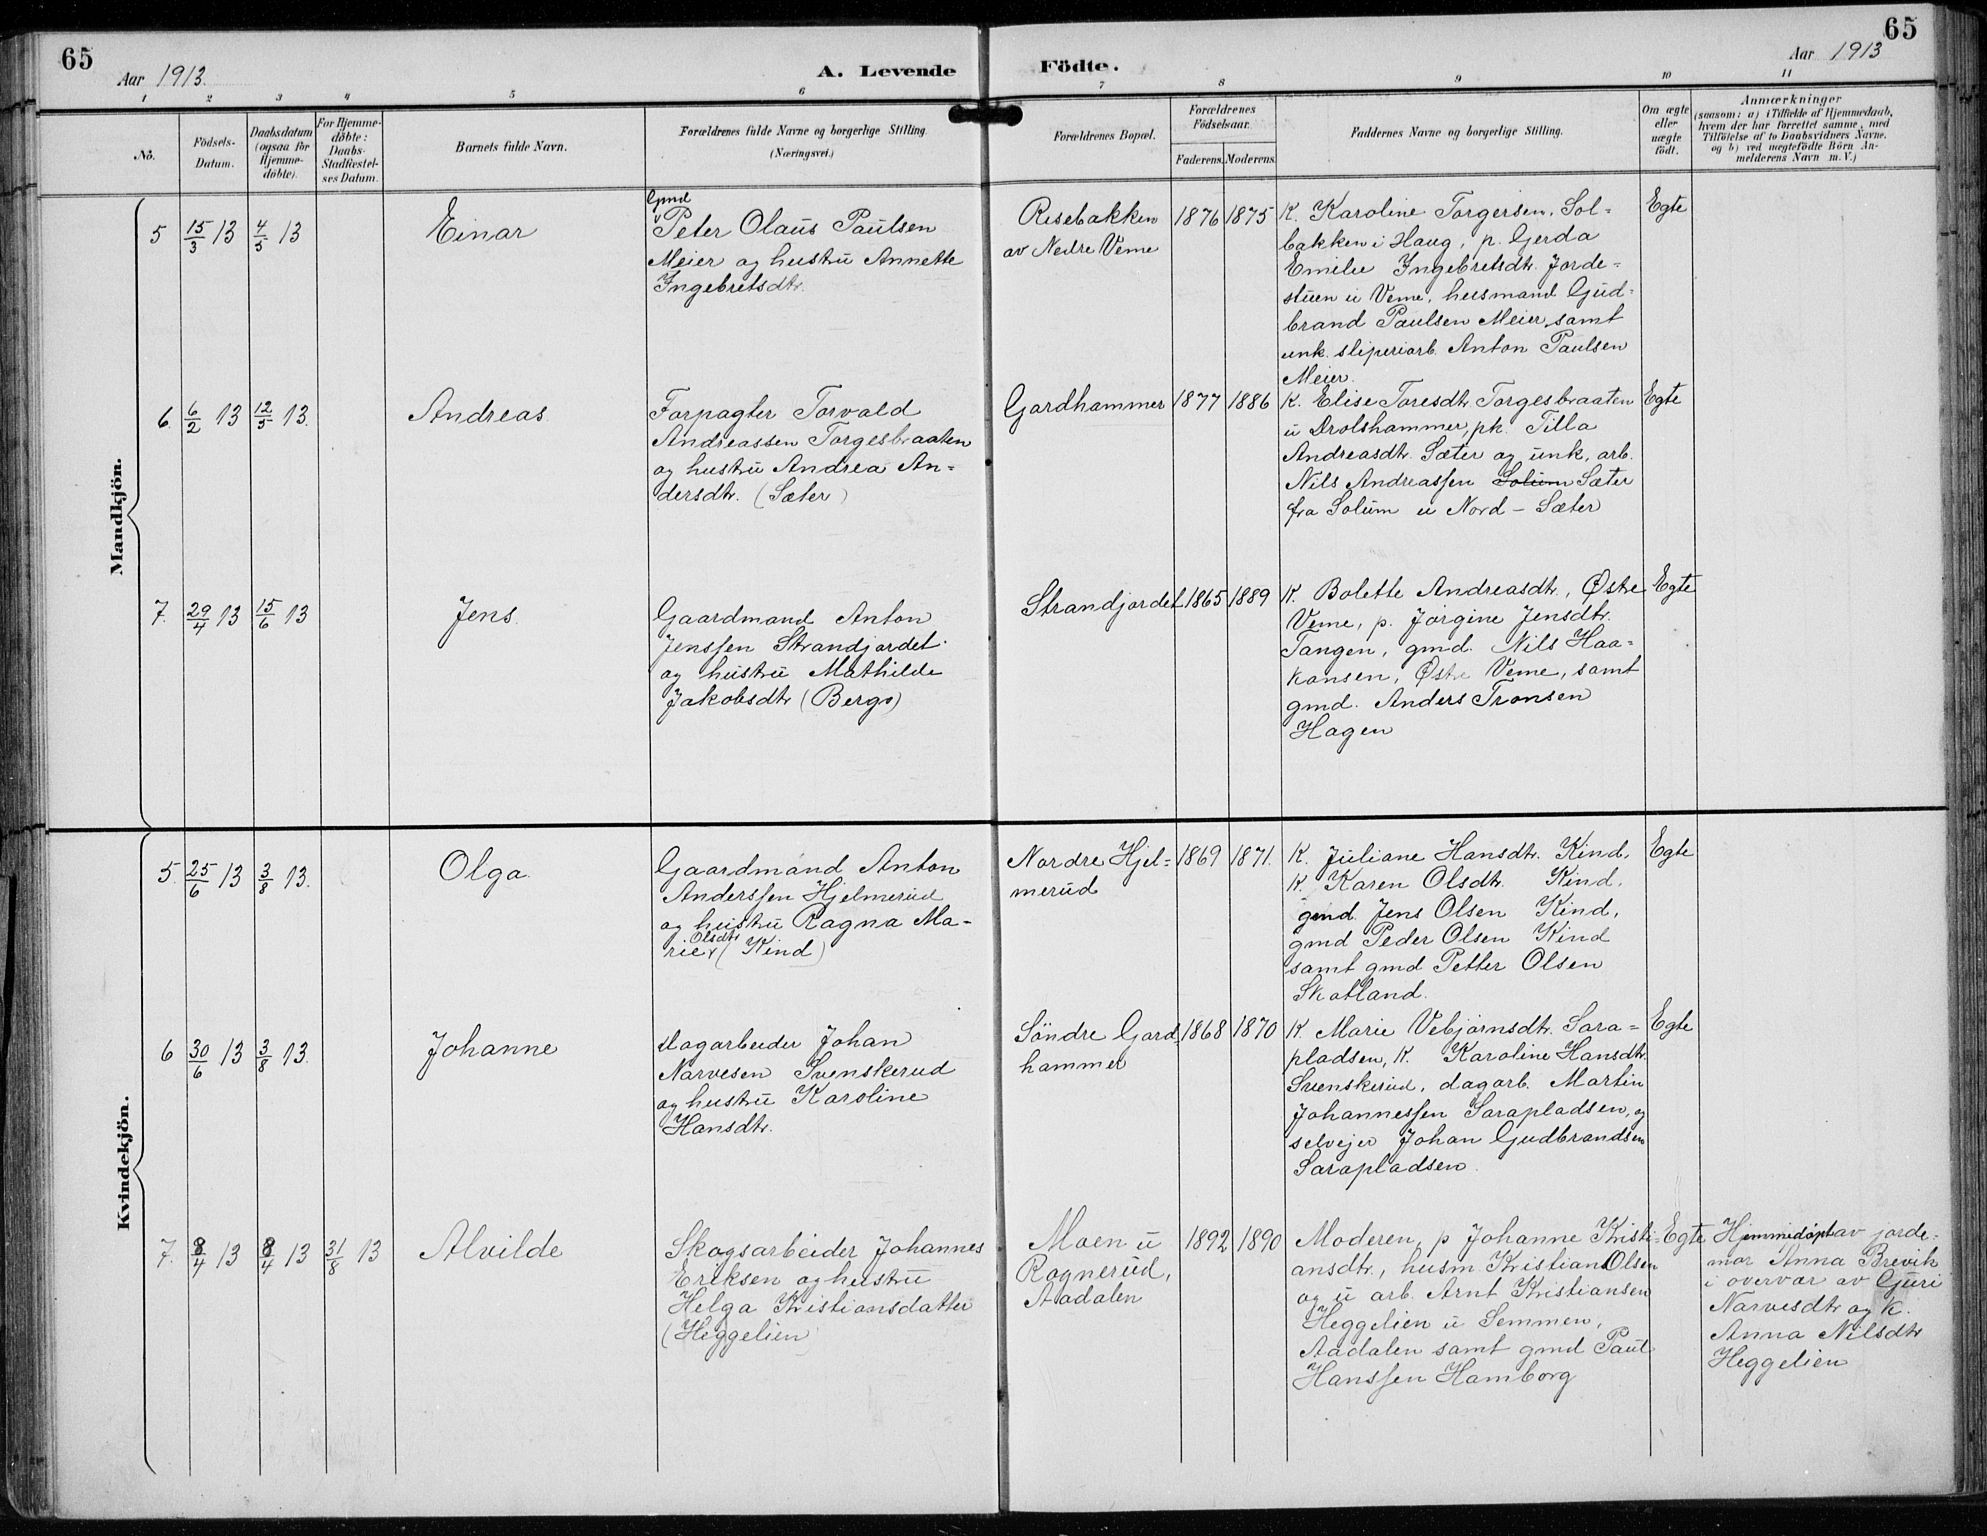 65
Aar 1913.
A. Levende
Födte.
65
Aar 1913
1 2 3 4 5 6 7 8 9 10 11
No.
Födsels-
Datum.
Daabsdatum
(ogsaa for
Hjemme-
döbte).
For Hjemme-
döbte:
Daabs-
Stadfæstel-
ses Datum.
Barnets fulde Navn.
Forældrenes fulde Navne og borgerlige Stilling.
(Næringsvei.)
Forældrenes Bopæl.
Forældrenes
Födselsaar.
Faderens. Moderens.
Faddernes Navne og borgerlige Stilling.
Om ægte
eller
uægte
födt.
Anmærkninger
(saasom: a) i Tilfælde af Hjemmedaab,
hvem der har forrettet samme, med
Tilföielse af to Daabsvidners Navne,
og b) ved uægtefödte Börn An-
melderens Navn m. V.)
Mandkjön.
5 15/3 13 4/5 13
Einar
Gmd
Peter Olaus Paulsen
Meier og hustru Annette
Ingebretsdtr.
Risebakken
av Nedre Veme
1876 1875
K. Karoline Torgersen, Sol=
bakken i Haug, p. Gerda
Emilie Ingebretsdtr. Jorde=
stuen u Veme, husmand Gud=
brand Paulsen Meier, samt
unk. sliperiarb. Anton Paulsen
Meier.
Egte
6. 6/2 13 12/5 13.
Andreas.
Forpagter Torvald
Andreassen Torgesbraaten
og hustru Andrea An=
dersdtr. (Sæter)
Gardhammer
1877 1886
K. Elise Toresdtr. Torgesbraaten
u Drolshammer, pk. Tilla
Andreasdtr. Sæter og unk. arb.
Nils Andreassen Solum Sæter
fra Solum u Nord - Sæter
Egte
7. 29/4 13 15/6 13
Jens.
Gaardmand Anton
Jenssen Strandjordet
og hustru Mathilde
Jakobsdtr. (Berg)
Strandjordet
1865 1889
K. Bolette Andreasdtr., Østre
Veme, p. Jörgine Jensdtr.
Tangen, gmd. Nils Haa=
kansen, Østre Veme, samt
gmd. Anders Tronsen
Hagen
Egte
Kvindekjön.
5. 25/6 13 3/8 13.
Olga.
Gaardmand Anton
Anderssen Hjelmerud
og hustru Ragna Ma-
Olsdtr
rie (Kind)
Nordre Hjel=
merud
1869 1871.
K. Juliane Hansdtr. Kind,
K. Karen Olsdtr. Kind,
gmd. Jens Olsen Kind,
gmd Peder Olsen Kind
samt gmd Petter Olsen
Skotland.
Egte
6 30/6 13 3/8 13.
Johanne
Dagarbeider Johan
Narvesen Svenskerud
og hustru Karoline
Hansdtr.
Söndre Gard
hammer
1868 1870
K. Marie Vebjörnsdtr. Sara=
pladsen, K. Karoline Hansdtr.
Svenskerud, dagarb. Martin
Johannessen Sarapladsen, og
selvejer Johan Gudbrandsen
Sarapladsen.
Egte
7. 8/4 13 8/4 13 31/8 13
Alvilde
Skogsarbeider Johannes
Eriksen og hustru
Helga Kristiansdatter
(Heggelien)
Moen u
Rognerud,
Aadalen
1892 1890
Moderen, p Johanne Kristi=
ansdtr., husm Kristian Olsen
og u arb. Arnt Kristiansen
Heggelien u Semmen,
Aadalen samt gmd Paul
Hanssen Hamborg
Egte
Hjemmedøpt av jorde-
mor Anna Brevik
i overvær av Guri
Narvesdtr og K.
Anna Nilsdtr
Heggelien